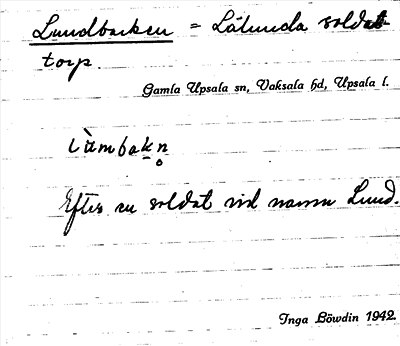 Lundbacken = Lälunda soldat
torp.
Gamla Upsala sn, Vaksala hd, Upsala l.
Efter en soldat vid namn Lund.
Inga Löwdin 1942.